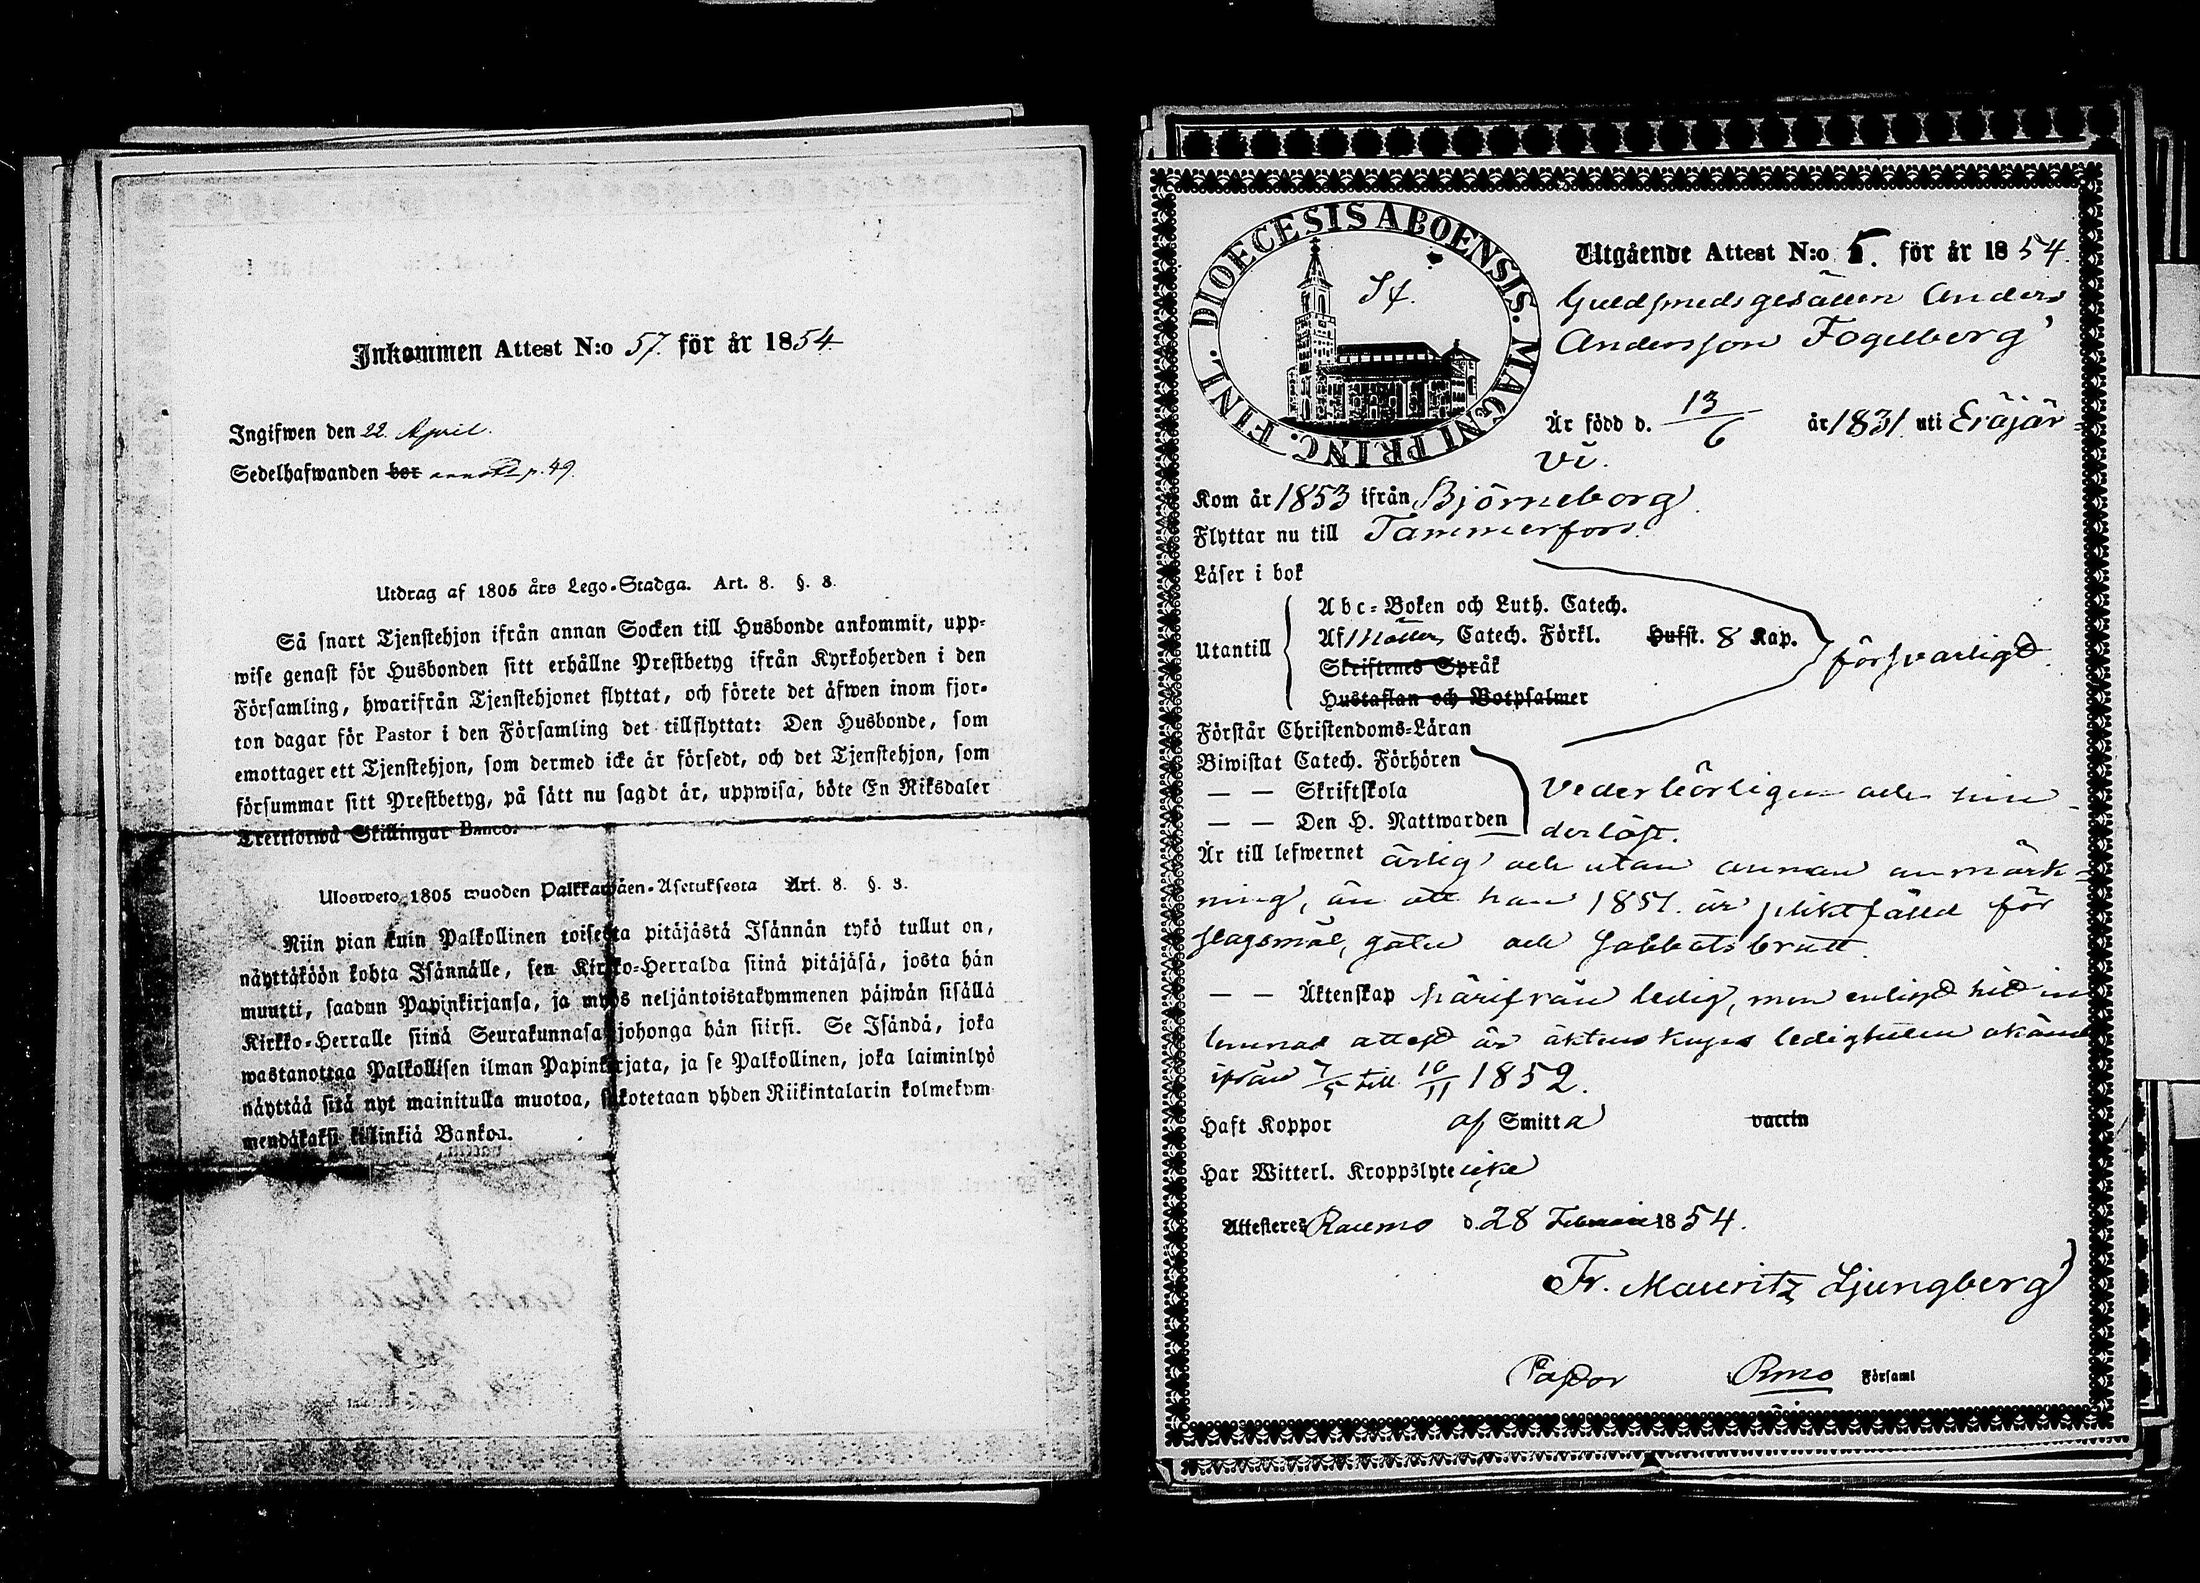 Inkommen Attest N:o 57. för år 1854
Ingifwen den 22. April.
Sedelhafwanden bor p. 49
Utdrag af 1805 års Lego-Stadga. Art. 8. §. 3.
Så snart Tjenstehjon ifrån annan Socken till Husbonde ankommit, upp-
wise genast för Husbonden sitt erhållne Prestbetyg ifrån Kyrkoherden i den
Församling, hwarifrån Tjenstehjonet flyttat, och förete det äfwen inom fjor-
ton dagar för Pastor i den Församling det tillflyttat: Den Husbonde, som
emottager ett Tjenstehjon, som dermed icke är försedt, och det Tjenstehjon, som
försummar sitt Prestbetyg, på sätt nu sagdt är, uppwisa, böte En Riksdaler
Trettiotwå Skillingar Banco.
Ulosweto 1805 wuoden Palkkawäen-Asetuksesta Art. 8. §. 3.
Niin pian kuin Palkollinen toisesta pitäjästä Isännän tykö tullut on,
näyttäköön kohta Isännälle, sen Kirkko-Herralda siinä pitäjäsä, josta hän
muutti, saadun Papinkirjansa, ja myös neljäntoistakymmenen päiwän sisällä
Kirkko-Herralle siinä Seurakunnasa johonga hän siirsi. Se Isändä, joka
wastanottaa Palkollisen ilman Papinkirjata, ja se Palkollinen, joka laiminlyö
näyttää sitä nyt mainitulla muotoa, sakotetaan yhden Riikintalarin kolmekym-
mendäkaksi killinkiä Bankoa.
DIOECESIS ABOENSIS. MAGNI PRINC. FINL.
Utgående Attest N:o 5. för år 1854.
Guldsmedsgesällen Anders
Andersson Fogelberg
Är född d. 13/6 år 1831. uti Eräjär-
vi.
Kom år 1853 ifrån Björneborg.
Flyttar nu till Tammerfors.
Läser i bok
Utantill
Abc-Boken och Luth. Catech.
Af Möller Catech. Förkl. Hufst. 8 Kap.
Skriftenes Språk
Hustaflan och Botpsalmer
försvarligt.
Förstår Christendoms-Läran
Biwistat Catech. Förhören
— — Skriftskola
— — Den H. Nattwarden
vederbörligen och sin-
derlöst.
Är till lefwernet ärlig och utan annan anmärk-
ning, än att han 1851. är pliktfälld för
slagsmål, gåln och Sabbatsbrott.
— — Äktenskap härifrån ledig, men enligt hit in
lemnad attest är äktenskaps ledigheten okänd
ifrån 7/5 till 10/11 1852.
Haft Koppor af Smitta vaccin
Har Witterl. Kroppslyte icke
Attesteres Raumo d. 28 Februarii 1854.
Fr. Mauritz Ljungberg
Pastor Rmo Församl